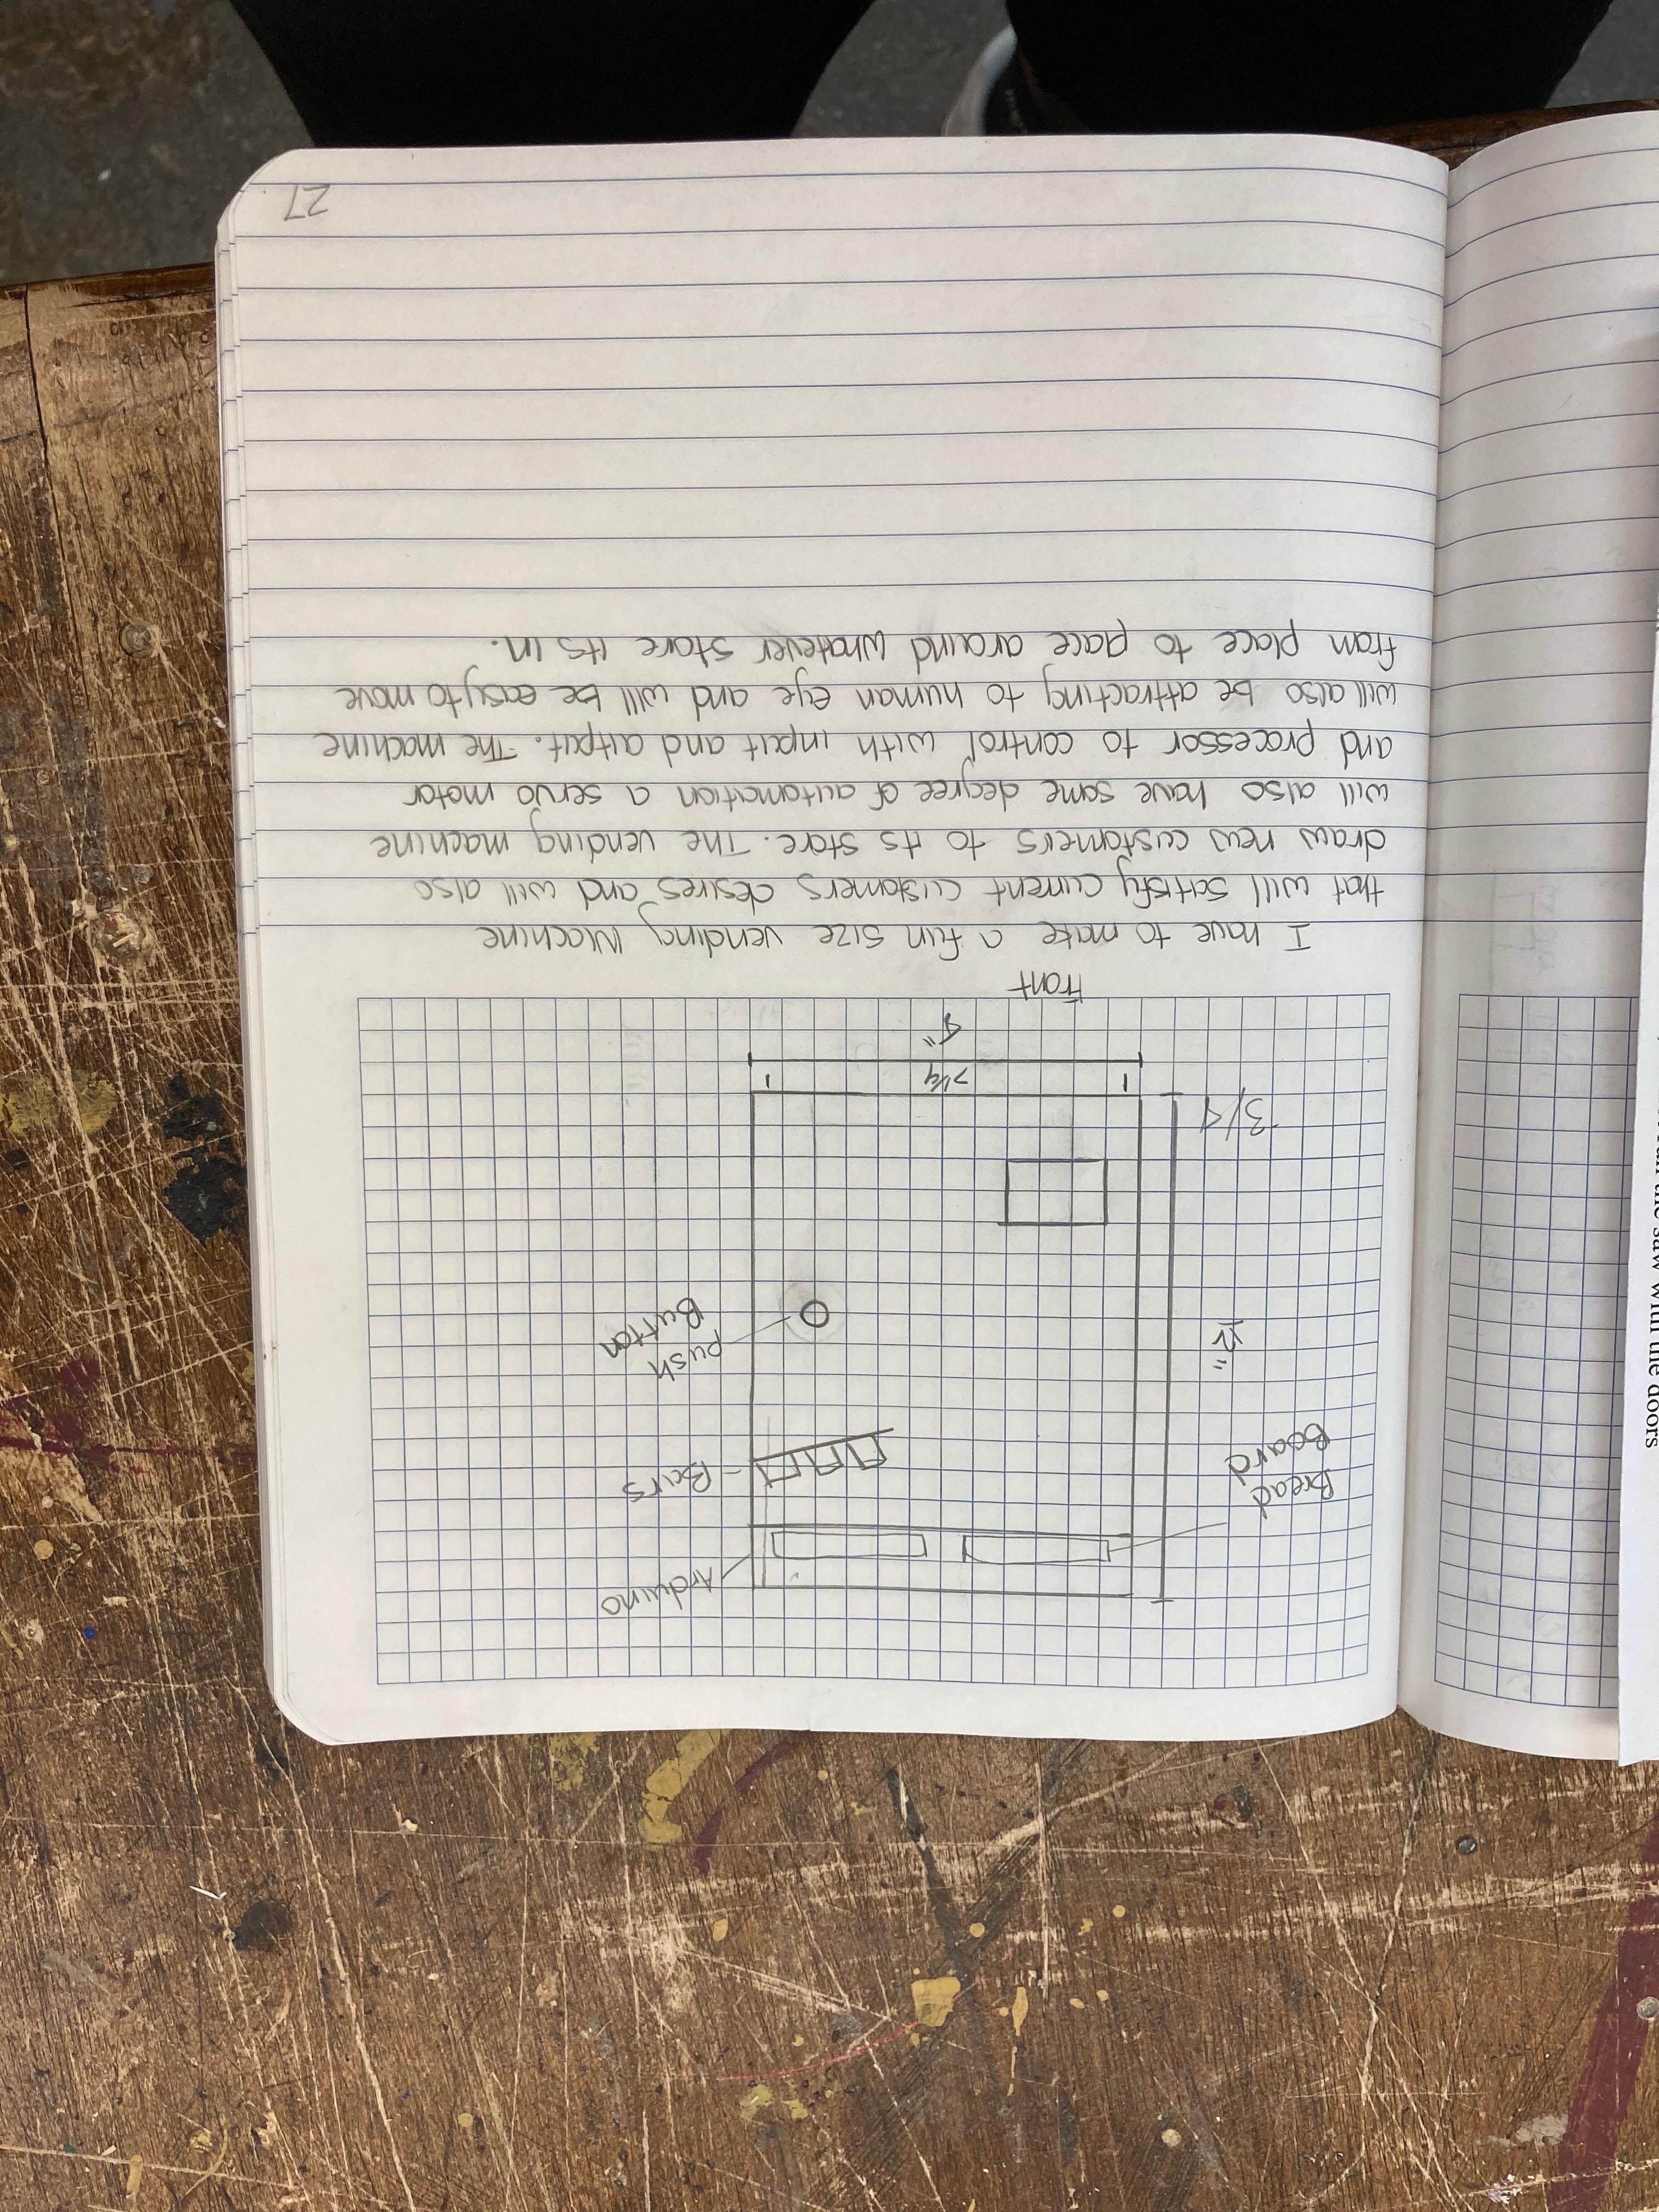 Arduino
Bread
Board
Bars
Push
Button
12"
3/4
7 1/4
Front
I have to make a fun size vending Machine
that will satisfy current customers desires and will also
draw new customers to its store. The vending machine
will also have some degree of automation a servo motor
and processor to control with input and output. The machine
will also be attracting to human eye and will be easy to move
from place to place around whatever store its in.
27
saw with the doors